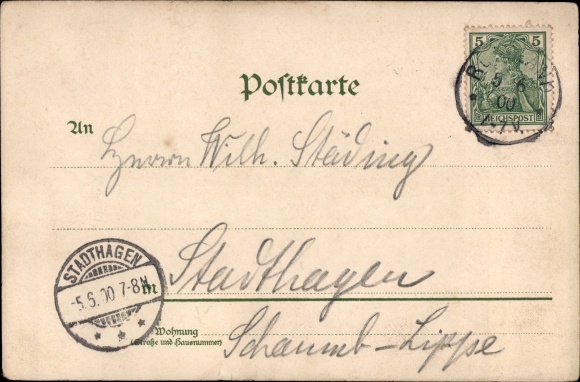 5 5
5 6
00
REICHSPOST
Postkarte
An
Herrn Wilh. Städing
STADTHAGEN
-5.6.00 7-8N
in Stadthagen
Wohnung
(Straße und Hausnummer)
Schaumb-Lippe